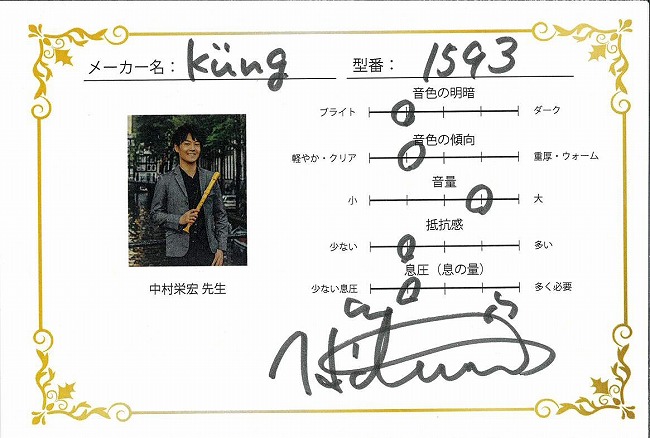 メーカー名： Küng
型番： 1593
音色の明暗
ブライト ダーク
音色の傾向
軽やか・クリア 重厚・ウォーム
音量
小 大
抵抗感
少ない 多い
息圧（息の量）
少ない息圧 多く必要
中村栄宏 先生